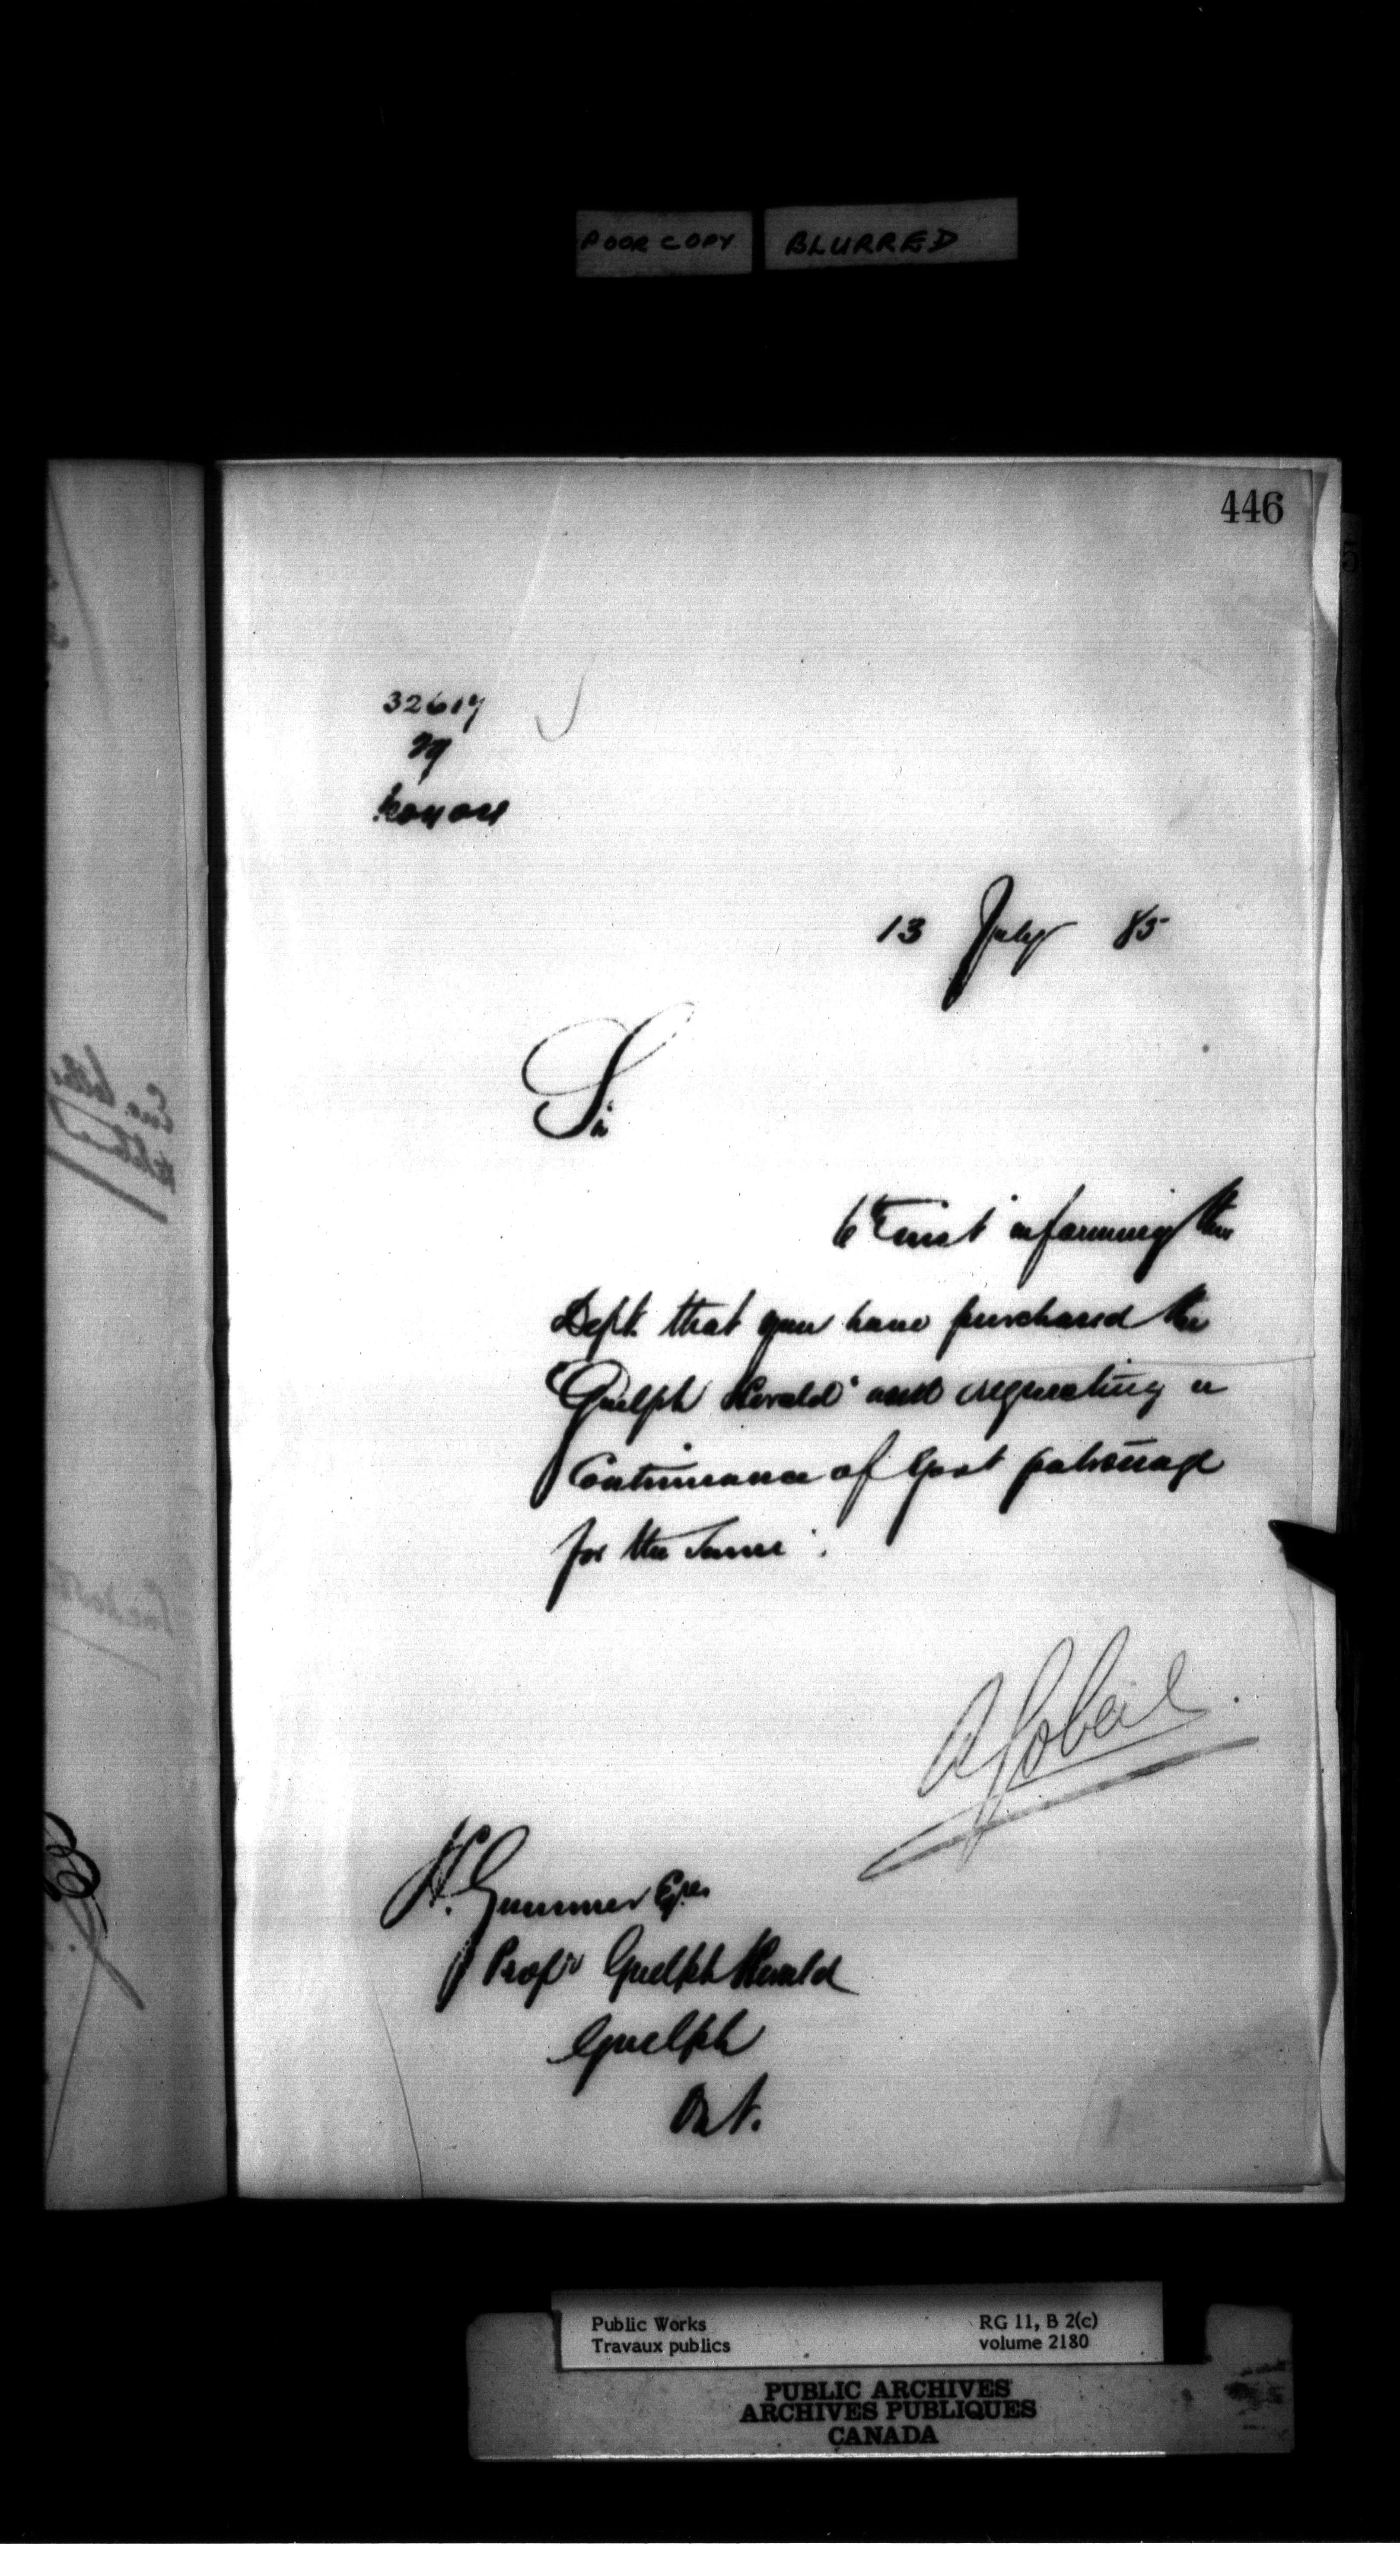 POOR COPY BLURRED
446
32617
13 July 85
Sir
6th inst informing this
Dept. that you have purchased the
"Guelph Herald" and requesting a
Continuance of Govt patronage
for the same.
A Gobeil.
H. Gummer Esqe.
Propr Guelph Herald
Guelph
Ont.
Public Works
Travaux publics
RG 11, B 2(c)
volume 2180
PUBLIC ARCHIVES
ARCHIVES PUBLIQUES
CANADA